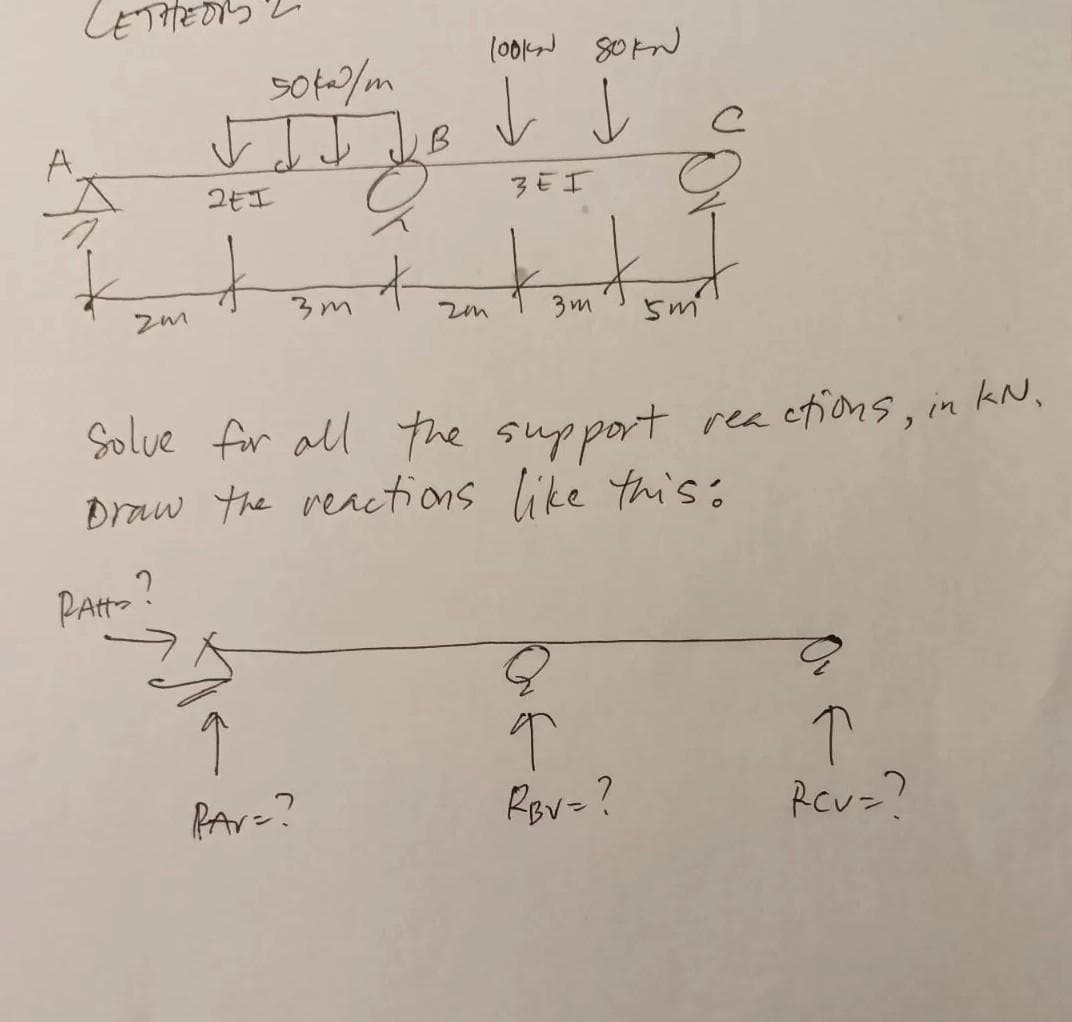 100kN 80kN
50kN/m
A B C
2EI 3EI
2m 3m 2m 3m 5m
Solve for all the support reactions, in kN.
Draw the reactions like this:
RAH=?
RAV=? RBV=? RCV=?